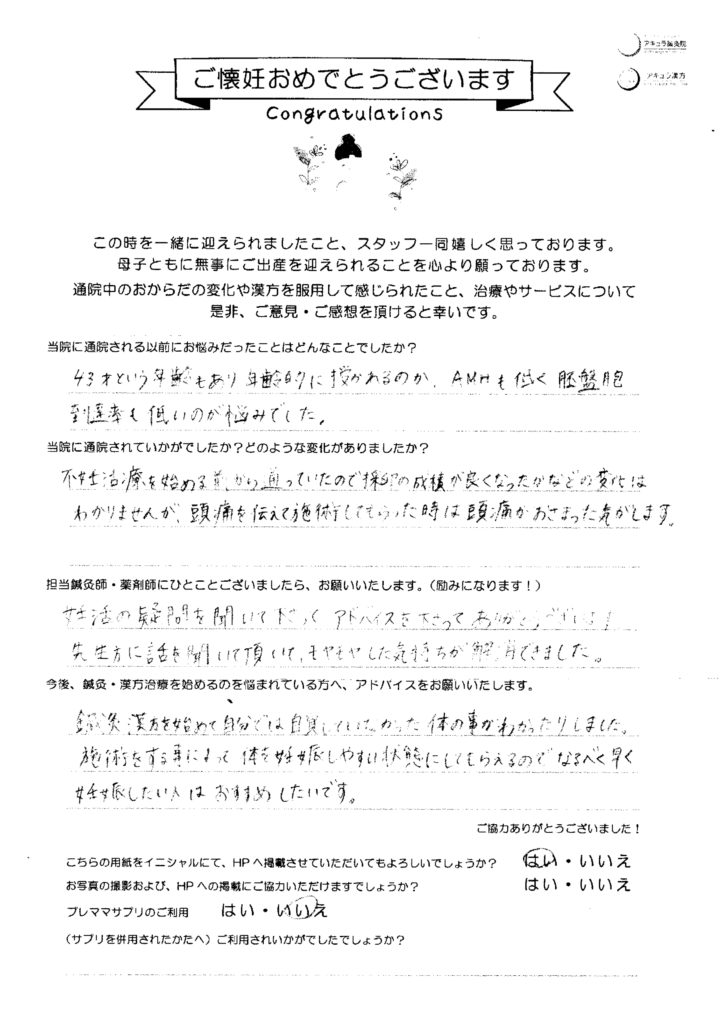 アキュラ鍼灸院
アキュラ漢方
ご懐妊おめでとうございます
Congratulations
この時を一緒に迎えられましたこと、スタッフ一同嬉しく思っております。
母子ともに無事にご出産を迎えられることを心より願っております。
通院中のおからだの変化や漢方を服用して感じられたこと、治療やサービスについて
是非、ご意見・ご感想を頂けると幸いです。
当院に通院される以前にお悩みだったことはどんなことでしたか？
43才という年齢もあり年齢的に授かれるのか、AMHも低く胚盤胞
到達率も低いのが悩みでした。
当院に通院されていかがでしたか？どのような変化がありましたか？
不妊治療を始める前から通っていたので採卵の成績が良くなったかなどの変化は
わかりませんが、頭痛を伝えて施術してもらった時は頭痛がおさまった気がします。
担当鍼灸師・薬剤師にひとことございましたら、お願いいたします。（励みになります！）
妊活の疑問を聞いて下さってアドバイスを下さってありがとうございます！
先生方に話を聞いて頂いて、モヤモヤした気持ちが解消できました。
今後、鍼灸・漢方治療を始めるのを悩まれている方へ、アドバイスをお願いいたします。
鍼灸、漢方を始めて自分では自覚していなかった体の事がわかったりしました。
施術をする事によって体を妊娠しやすい状態にしてもらえるのでなるべく早く
妊娠したい人はおすすめしたいです。
ご協力ありがとうございました！
こちらの用紙をイニシャルにて、HPへ掲載させていただいてもよろしいでしょうか？ はい・いいえ
お写真の撮影および、HPへの掲載にご協力いただけますでしょうか？ はい・いいえ
プレママサプリのご利用 はい・いいえ
（サプリを併用されたかたへ）ご利用されいかがでしたでしょうか？